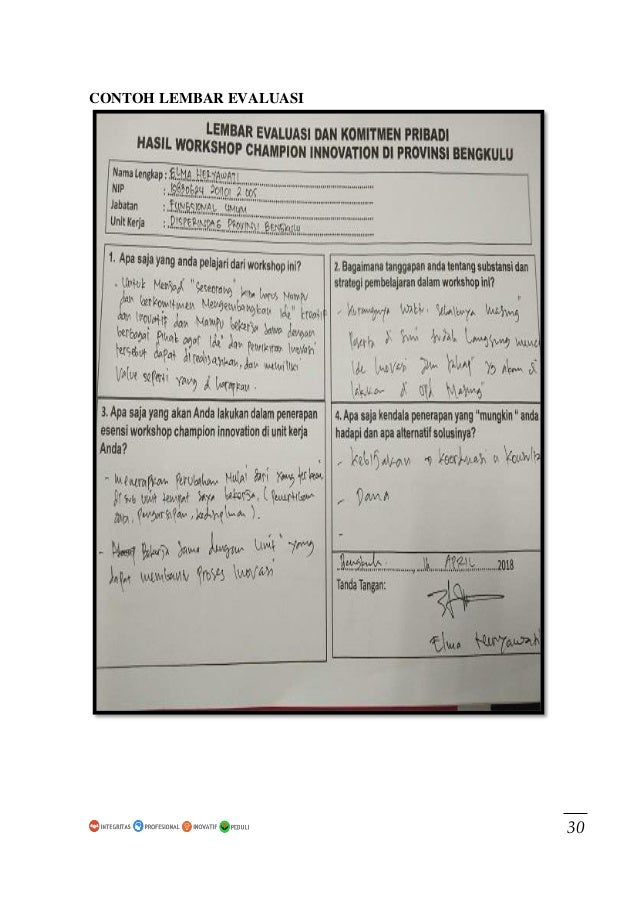 CONTOH LEMBAR EVALUASI
LEMBAR EVALUASI DAN KOMITMEN PRIBADI
HASIL WORKSHOP CHAMPION INNOVATION DI PROVINSI BENGKULU
Nama Lengkap : ELMA HERYAWATI
NIP :
Jabatan : FUNGSIONAL UMUM
Unit Kerja : DISPERINDAG PROVINSI BENGKULU
1. Apa saja yang anda pelajari dari workshop ini?
- Untuk Menjadi "seseorang" kita harus Mampu
dan berkomitmen Mengembangkan Ide" kreatif
dan Inovatif dan Mampu bekerja sama dengan
berbagai pihak agar Ide dan pemikiran Inovasi
tersebut dapat direalisasikan, dan memiliki
Value seperti yang d harapkan.
2. Bagaimana tanggapan anda tentang substansi dan
strategi pembelajaran dalam workshop ini?
- Kurangnya waktu. Sebaiknya masing"
Peserta di sini sudah Langsung
Ide Inovasi dan tahap yg akan di
lakukan di OPD Masing"
3. Apa saja yang akan Anda lakukan dalam penerapan
esensi workshop champion innovation di unit kerja
Anda?
- menerapkan Perubahan Mulai Dari yang terkecil
di sub unit tempat saya bekerja, (penertiban
data, pengarsipan, kedisiplinan).
- Bekerja Sama dengan Unit" yang
dapat membantu proses Inovasi
4. Apa saja kendala penerapan yang "mungkin" anda
hadapi dan apa alternatif solusinya?
- Kebijakan → koordinasi
- Dana
-
Bengkulu, 16 APRIL 2018
Tanda Tangan:
Elma Heryawati
INTEGRITAS PROFESIONAL INOVATIF PEDULI
30